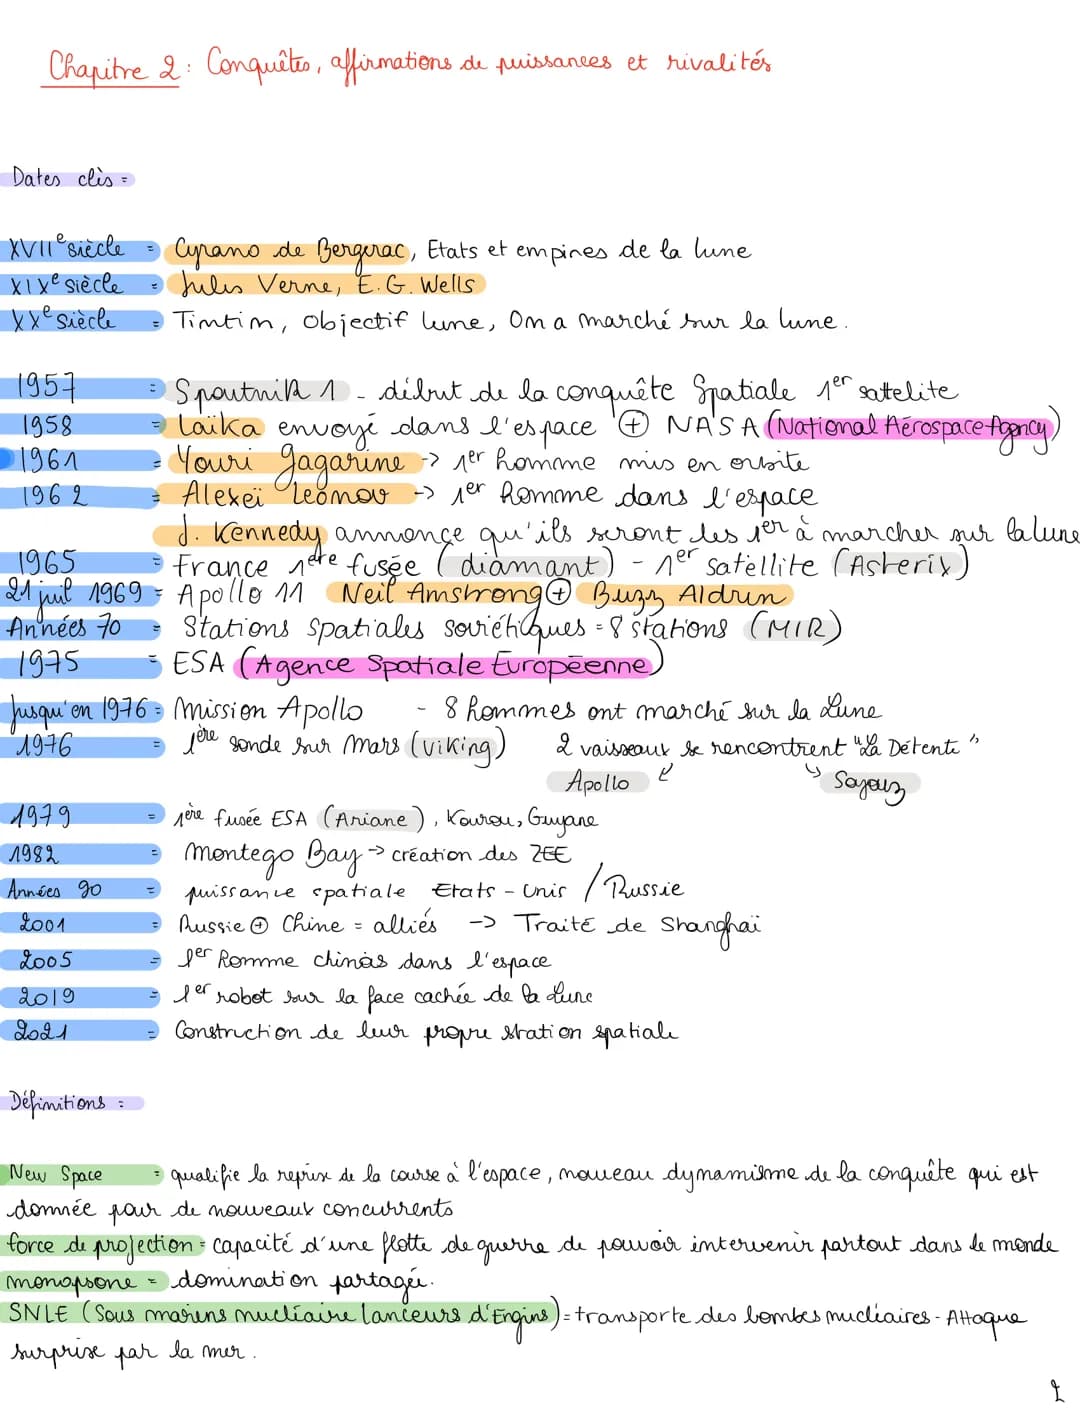 Chapitre 2 : Conquêtes, affirmations de puissances et rivalités
Dates clès =
XVIIe siècle = Cyrano de Bergerac, Etats et empines de la lune
XIXe siècle = Jules Verne, E.G. Wells
XXe siècle = Tintin, Objectif lune, On a marché sur la lune.
1957 = Spoutnik 1 - début de la conquête Spatiale 1er sattelite
1958 = Laïka envoyé dans l'espace + NASA (National Aérospace Agency)
1961 = Youri Gagarine -> 1er homme mis en orbite
1962 = Alexeï Leonov -> 1er homme dans l'espace
J. Kennedy annonce qu'ils seront les 1er à marcher sur la lune
1965 = France 1ère fusée (diamant) - 1er satellite (Asterix)
21 juil 1969 = Apollo 11 Neil Amstrong + Buzz Aldrin
Années 70 = Stations Spatiales soviétiques = 8 stations (MIR)
1975 = ESA (Agence Spatiale Européenne)
Jusqu'en 1976 = Mission Apollo - 8 hommes ont marché sur la Lune
1976 = 1ère sonde sur Mars (viking) 2 vaisseaux se rencontrent "La Détente"
Apollo Soyouz
1979 = 1ère fusée ESA (Ariane), Kourou, Guyane
1982 = Montego Bay -> création des ZEE
Années 90 = puissance spatiale Etats - Unis / Russie
2001 = Russie + Chine = alliés -> Traité de Shanghaï
2005 = 1er homme chinois dans l'espace
2019 = 1er robot sur la face cachée de la Lune
2021 = Construction de leur propre station spatiale
Définitions :
New Space = qualifie la reprise de la course à l'espace, nouveau dynamisme de la conquête qui est
donnée pour de nouveaux concurrents
force de projection = capacité d'une flotte de guerre de pouvoir intervenir partout dans le monde
monopsone = domination partagée.
SNLE (Sous marins nucléaire lanceurs d'Engins) = transporte des bombes nucléaires - Attaque
surprise par la mer.